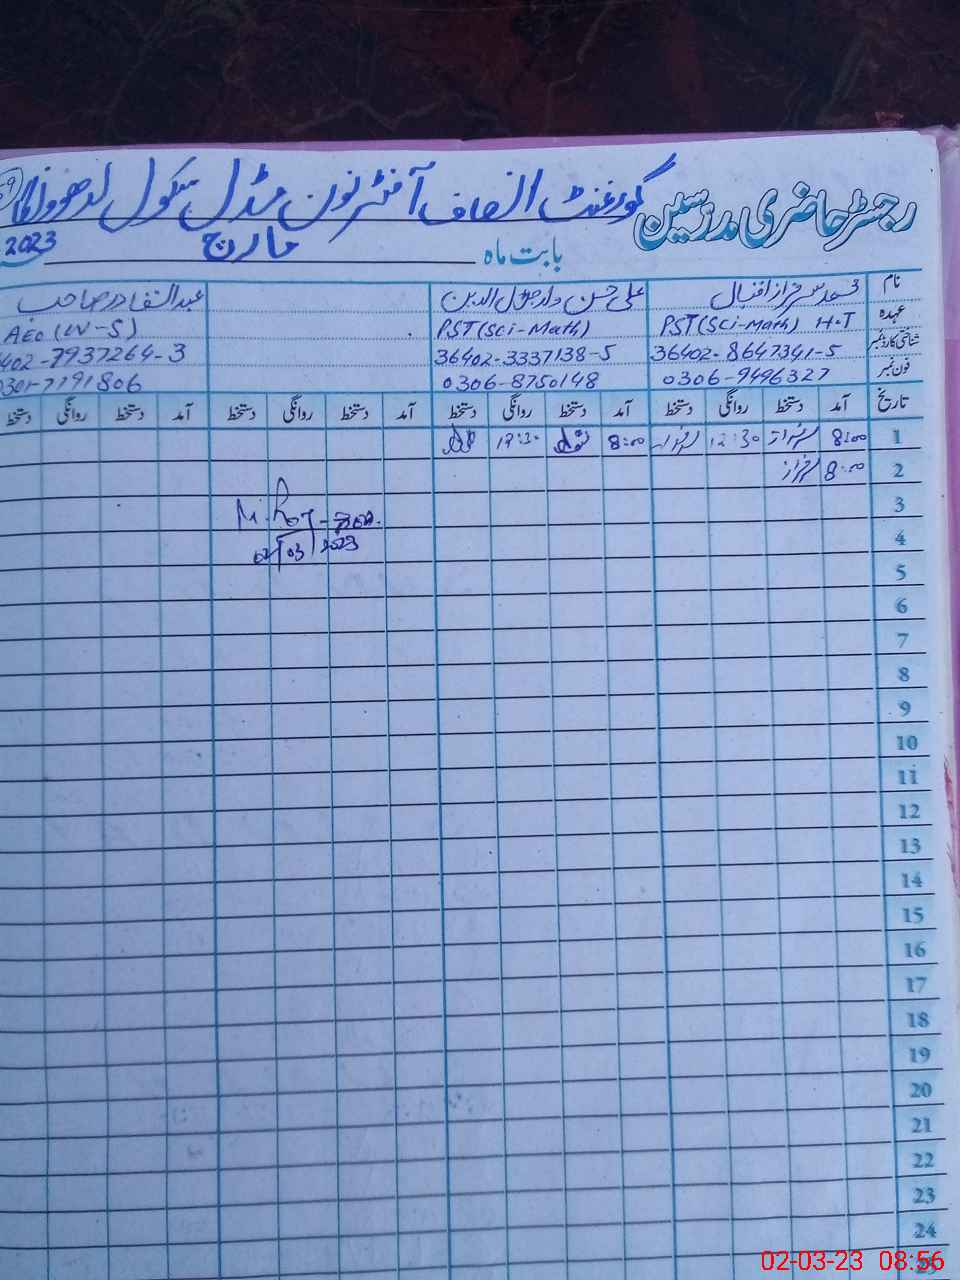 رجسٹر حاضری مدرسین گورنمنٹ انصاف آفٹر نون مڈل سکول
بابت ماہ مارچ 2023
نام محمد سرفراز اقبال علی حسن عبدالغفار صاحب
عہدہ PST (Sci-Math) H.T PST (Sci-Math) AEO
شناختی کارڈ نمبر 36402-8647341-5 36402-3337138-5 402-7937264-3
فون نمبر 0306-9496327 0306-8750148 0301-7191806
تاریخ آمد دستخط روانگی دستخط آمد دستخط روانگی دستخط آمد دستخط روانگی دستخط آمد دستخط روانگی دستخط
1 8:00 سرفراز 12:30 سرفراز 8:00 12:30
2 8:00 سرفراز
3
4 02/03/2023
5
6
7
8
9
10
11
12
13
14
15
16
17
18
19
20
21
22
23
24
25
02-03-23 08:56